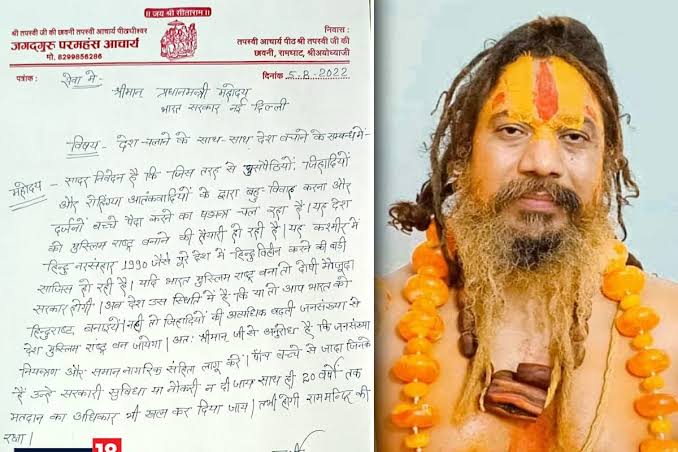 ॥ जय श्री सीताराम ॥
श्री तपस्वी जी की छावनी तपस्वी आचार्य पीठाधीश्वर
जगद्गुरु परमहंस आचार्य
मो. 8299856286
निवास :
तपस्वी आचार्य पीठ श्री तपस्वी जी की
छावनी, रामघाट, श्रीअयोध्याजी
पत्रांक :
दिनांक 5.8.2022
सेवा में -
श्रीमान् प्रधानमन्त्री महोदय
भारत सरकार नई दिल्ली
विषय - देश चलाने के साथ-साथ देश बचाने के सम्बन्ध में-
महोदय - सादर निवेदन है कि जिस तरह से घुसपैठियों जिहादियों
और रोहिंग्या आतंकवादियों के द्वारा बहु-विवाह करना और
दर्जनों बच्चे पैदा करने का षडयन्त्र चल रहा है। यह देश
को मुस्लिम राष्ट्र बनाने की तैयारी हो रही है। यह कश्मीर में
हिन्दू नरसंहार 1990 जैसे पूरे देश में हिन्दू विहीन करने की बड़ी
साजिश हो रही है। यदि भारत मुस्लिम राष्ट्र बना तो दोषी मौजूदा
सरकार होगी। अब देश उस स्थिति में है कि या तो आप भारत को
हिन्दूराष्ट्र बनाइये। नहीं तो जिहादियों की अत्यधिक बढ़ती जनसंख्या से
देश मुस्लिम राष्ट्र बन जायेगा। अतः श्रीमान् जी से अनुरोध है कि जनसंख्या
नियन्त्रण और समान नागरिक संहिता लागू करें। पाँच बच्चे से जादा जिनके
हैं उन्हें सरकारी सुविधा या नौकरी न दी जाय साथ ही 20 वर्षों तक
मतदान का अधिकार भी खत्म कर दिया जाय। तभी होगी राममन्दिर की
रक्षा।
18